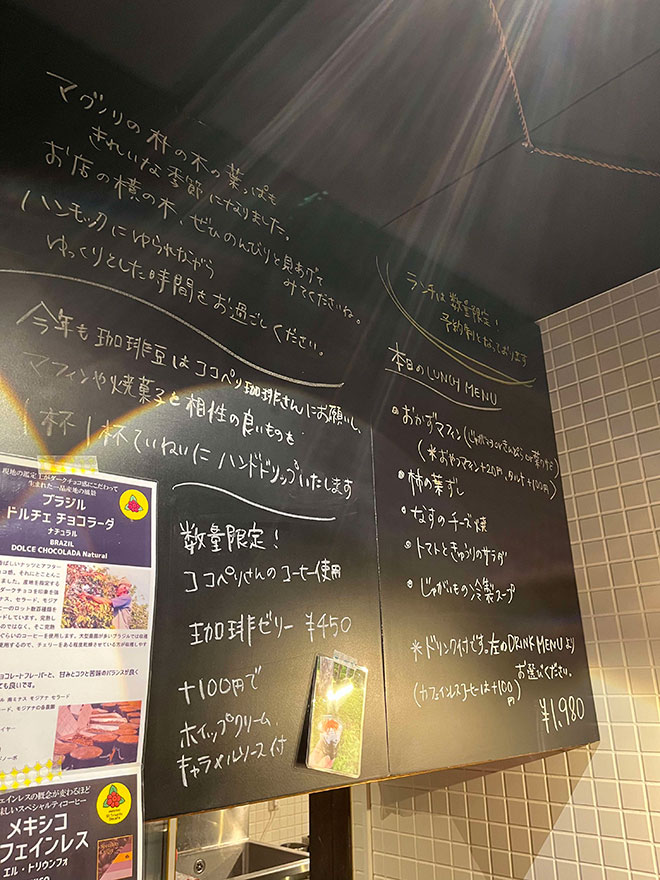 マグノリの柿の木の葉っぱも
きれいな季節になりました。
お店の横の木、ぜひのんびりと見あげて
みてくださいね。
ハンモックにゆられながら
ゆっくりとした時間をお過ごしください。
今年も珈琲豆はココペリ珈琲さんにお願いし、
マフィンや焼菓子と相性の良いものを
1杯1杯ていねいにハンドドリップいたします
数量限定!
ココペリさんのコーヒー使用
珈琲ゼリー ¥450
+100円で
ホイップクリーム
キャラメルソース付
ランチは数量限定!
予約制となっております
本日のLUNCH MENU
•おかずマフィン
(*おやつマフィン+20円、タルト+100円)
•柿の葉ずし
•なすのチーズ焼
•トマトときゅうりのサラダ
•じゃがいもの冷製スープ
*ドリンク付です。左のDRINK MENUより
お選びください。
(カフェインレスコーヒーは+100円)
¥1,980
ブラジル
ドルチェ チョコラーダ
ナチュラル
BRAZIL
DOLCE CHOCOLADA Natural
メキシコ
フェインレス
エル・トリウンフォ